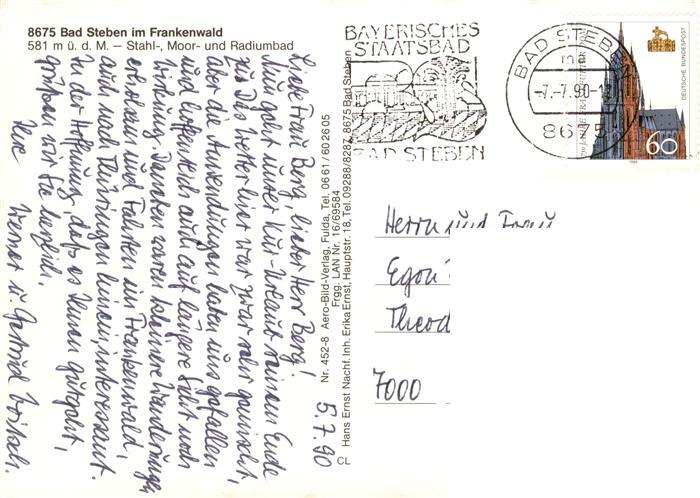 8675 Bad Steben im Frankenwald
581 m ü. d. M. – Stahl-, Moor- und Radiumbad
5.7.90
Liebe Frau Berg, lieber Herr Berg!
Nun geht unser Kur-Urlaub seinem Ende
zu. Das Wetter hier war zwar sehr gemischt,
aber die Anwendungen haben uns gefallen
und hoffentlich auch auf längere Sicht noch
Wirkung. Daneben waren kleinere Wanderungen
und Fahrten im Frankenwald,
auch nach Thüringen hinein, interessant.
In der Hoffnung, daß es Ihnen gutgeht,
grüßen wir Sie herzlich.
Ihre
Werner u. Gertrud
Nr. 452-8 Aero-Bild-Verlag, Fulda, Tel. 06 61 / 60 26 05
Frgg. LAN Nr. 16/69584
Hans Ernst Nachf. Inh. Erika Ernst, Hauptstr. 18, Tel. 09288/8287, 8675 Bad Steben
CL
BAYERISCHES
STAATSBAD
BAD STEBEN
BAD STEB
-7.-7.90-12
8675
DEUTSCHE BUNDESPOST
60
Herrn und Frau
Egon
Theod
7000